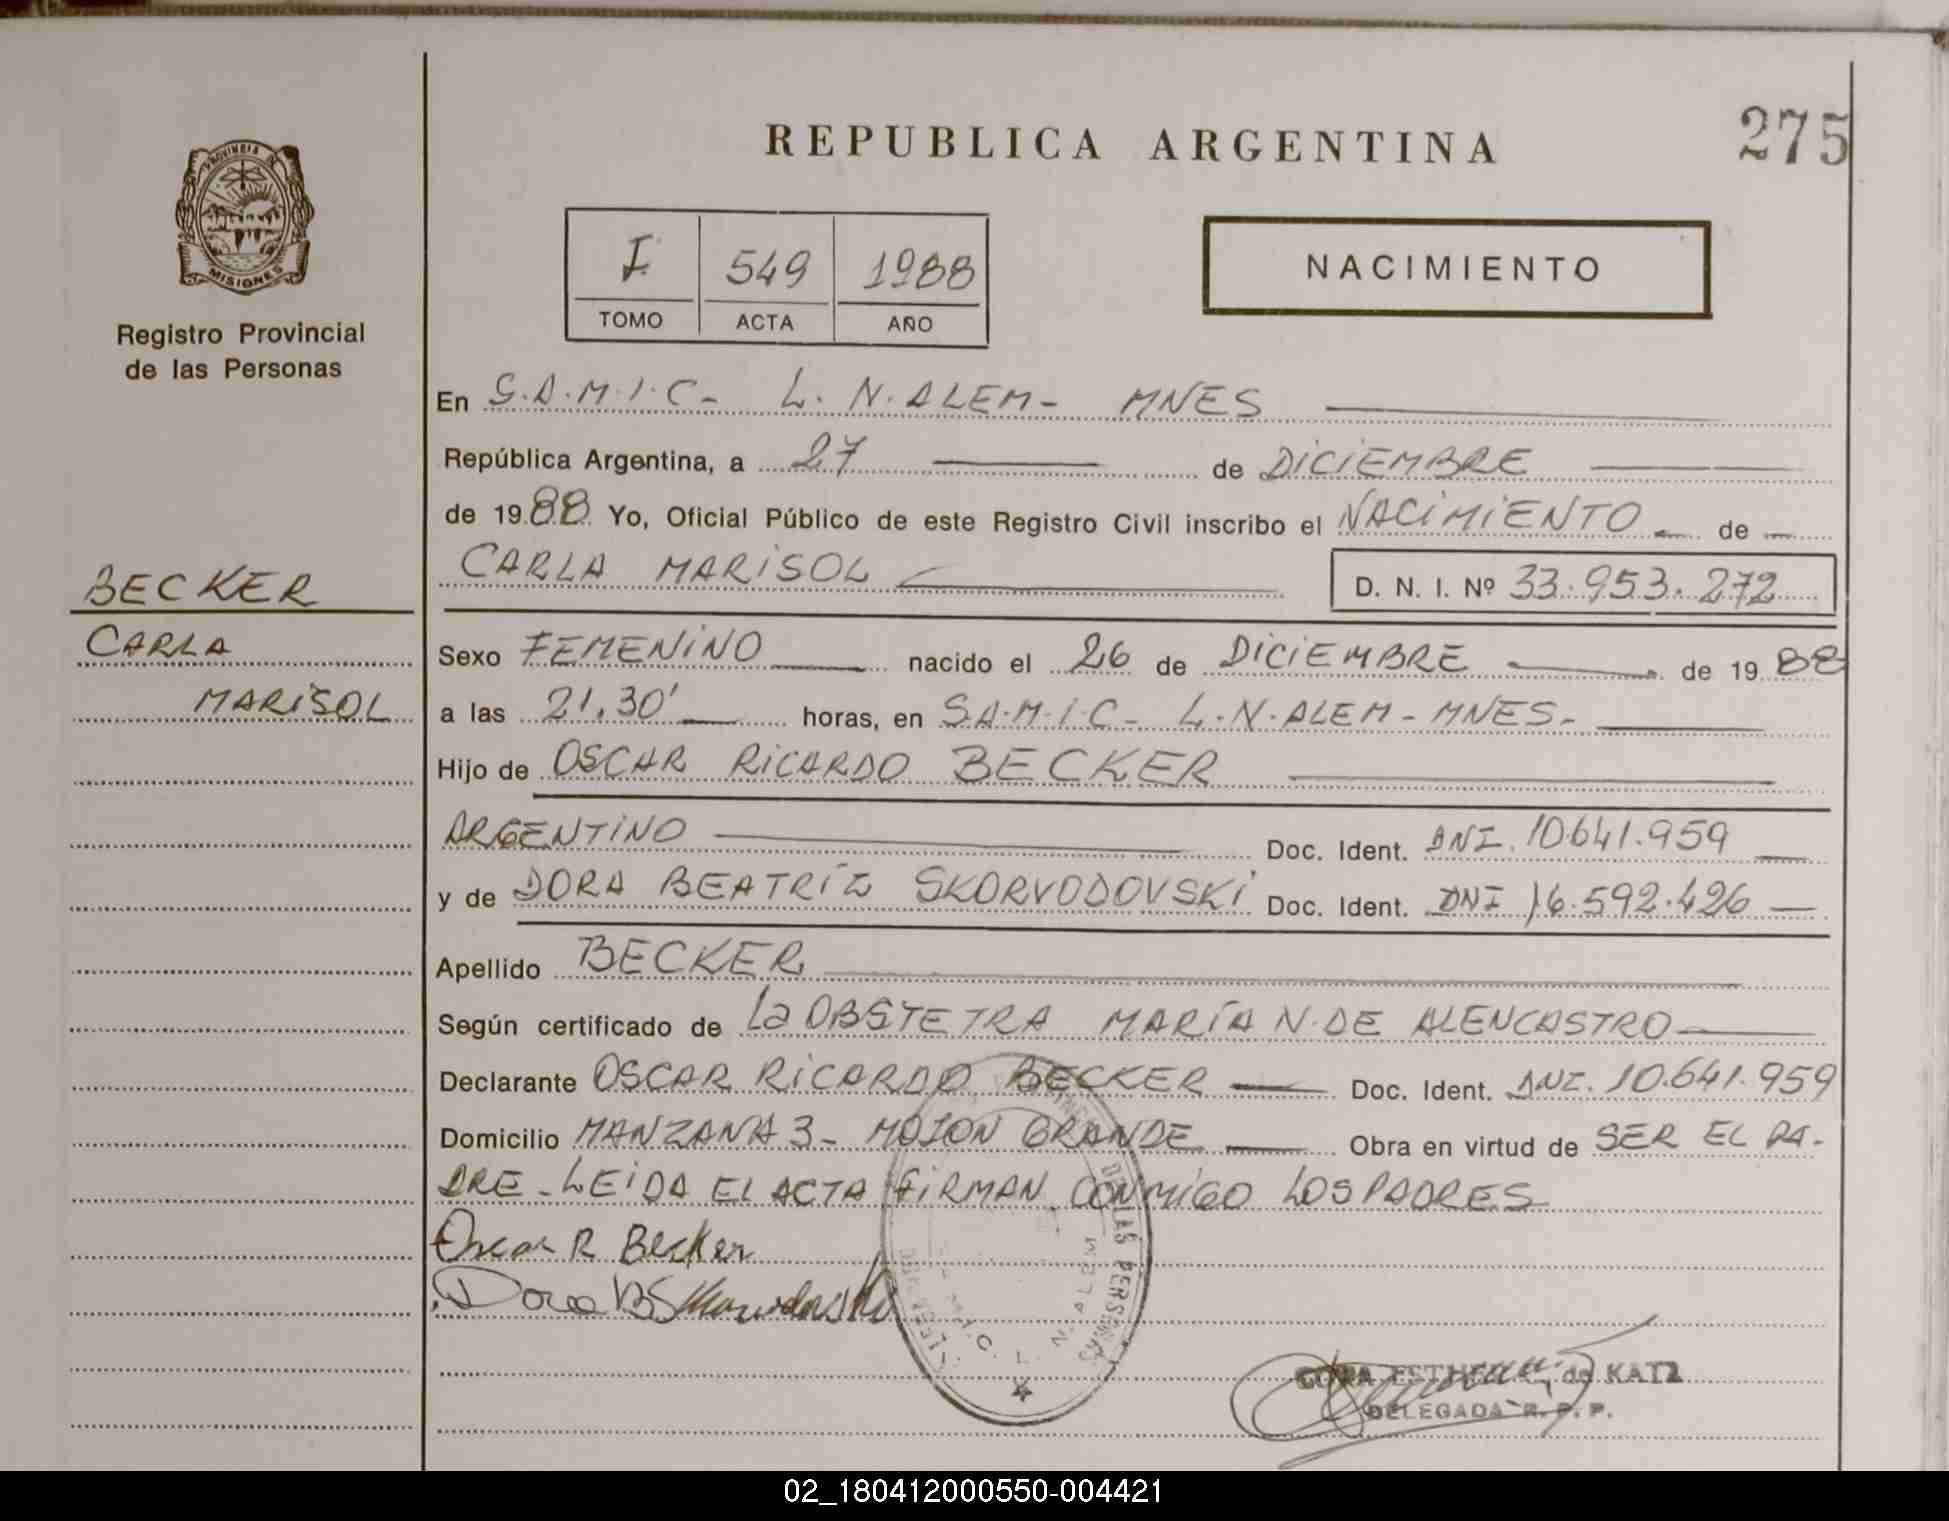 275
REPUBLICA ARGENTINA
PROVINCIA DE
MISIONES
Registro Provincial
de las Personas
I 549 1988
TOMO ACTA AÑO
NACIMIENTO
En S.A.M.I.C- L.N.ALEM- MNES
República Argentina, a 27 de DICIEMBRE
de 1988 Yo, Oficial Público de este Registro Civil inscribo el NACIMIENTO de
CARLA MARISOL D. N. I. Nº 33.953.272
BECKER
CARLA
MARISOL
Sexo FEMENINO nacido el 26 de DICIEMBRE de 1988
a las 21.30' horas, en S.A.M.I.C- L.N.ALEM-MNES-
Hijo de OSCAR RICARDO BECKER
ARGENTINO Doc. Ident. DNI. 10.641.959
y de DORA BEATRÍZ SKORVODOVSKI Doc. Ident. DNI 16.592.426
Apellido BECKER
Según certificado de La OBSTETRA MARÍA N. DE ALENCASTRO
Declarante OSCAR RICARDO BECKER Doc. Ident. DNI. 10.641.959
Domicilio MANZANA 3- MOJON GRANDE Obra en virtud de SER EL PA-
DRE-LEIDA EL ACTA FIRMAN CONMIGO LOS PADRES
Oscar R Becker
Dora B
DE LAS PERSONAS
L. N. ALEM
ESTHER de KATZ
DELEGADA R. P. P.
02_180412000550-004421